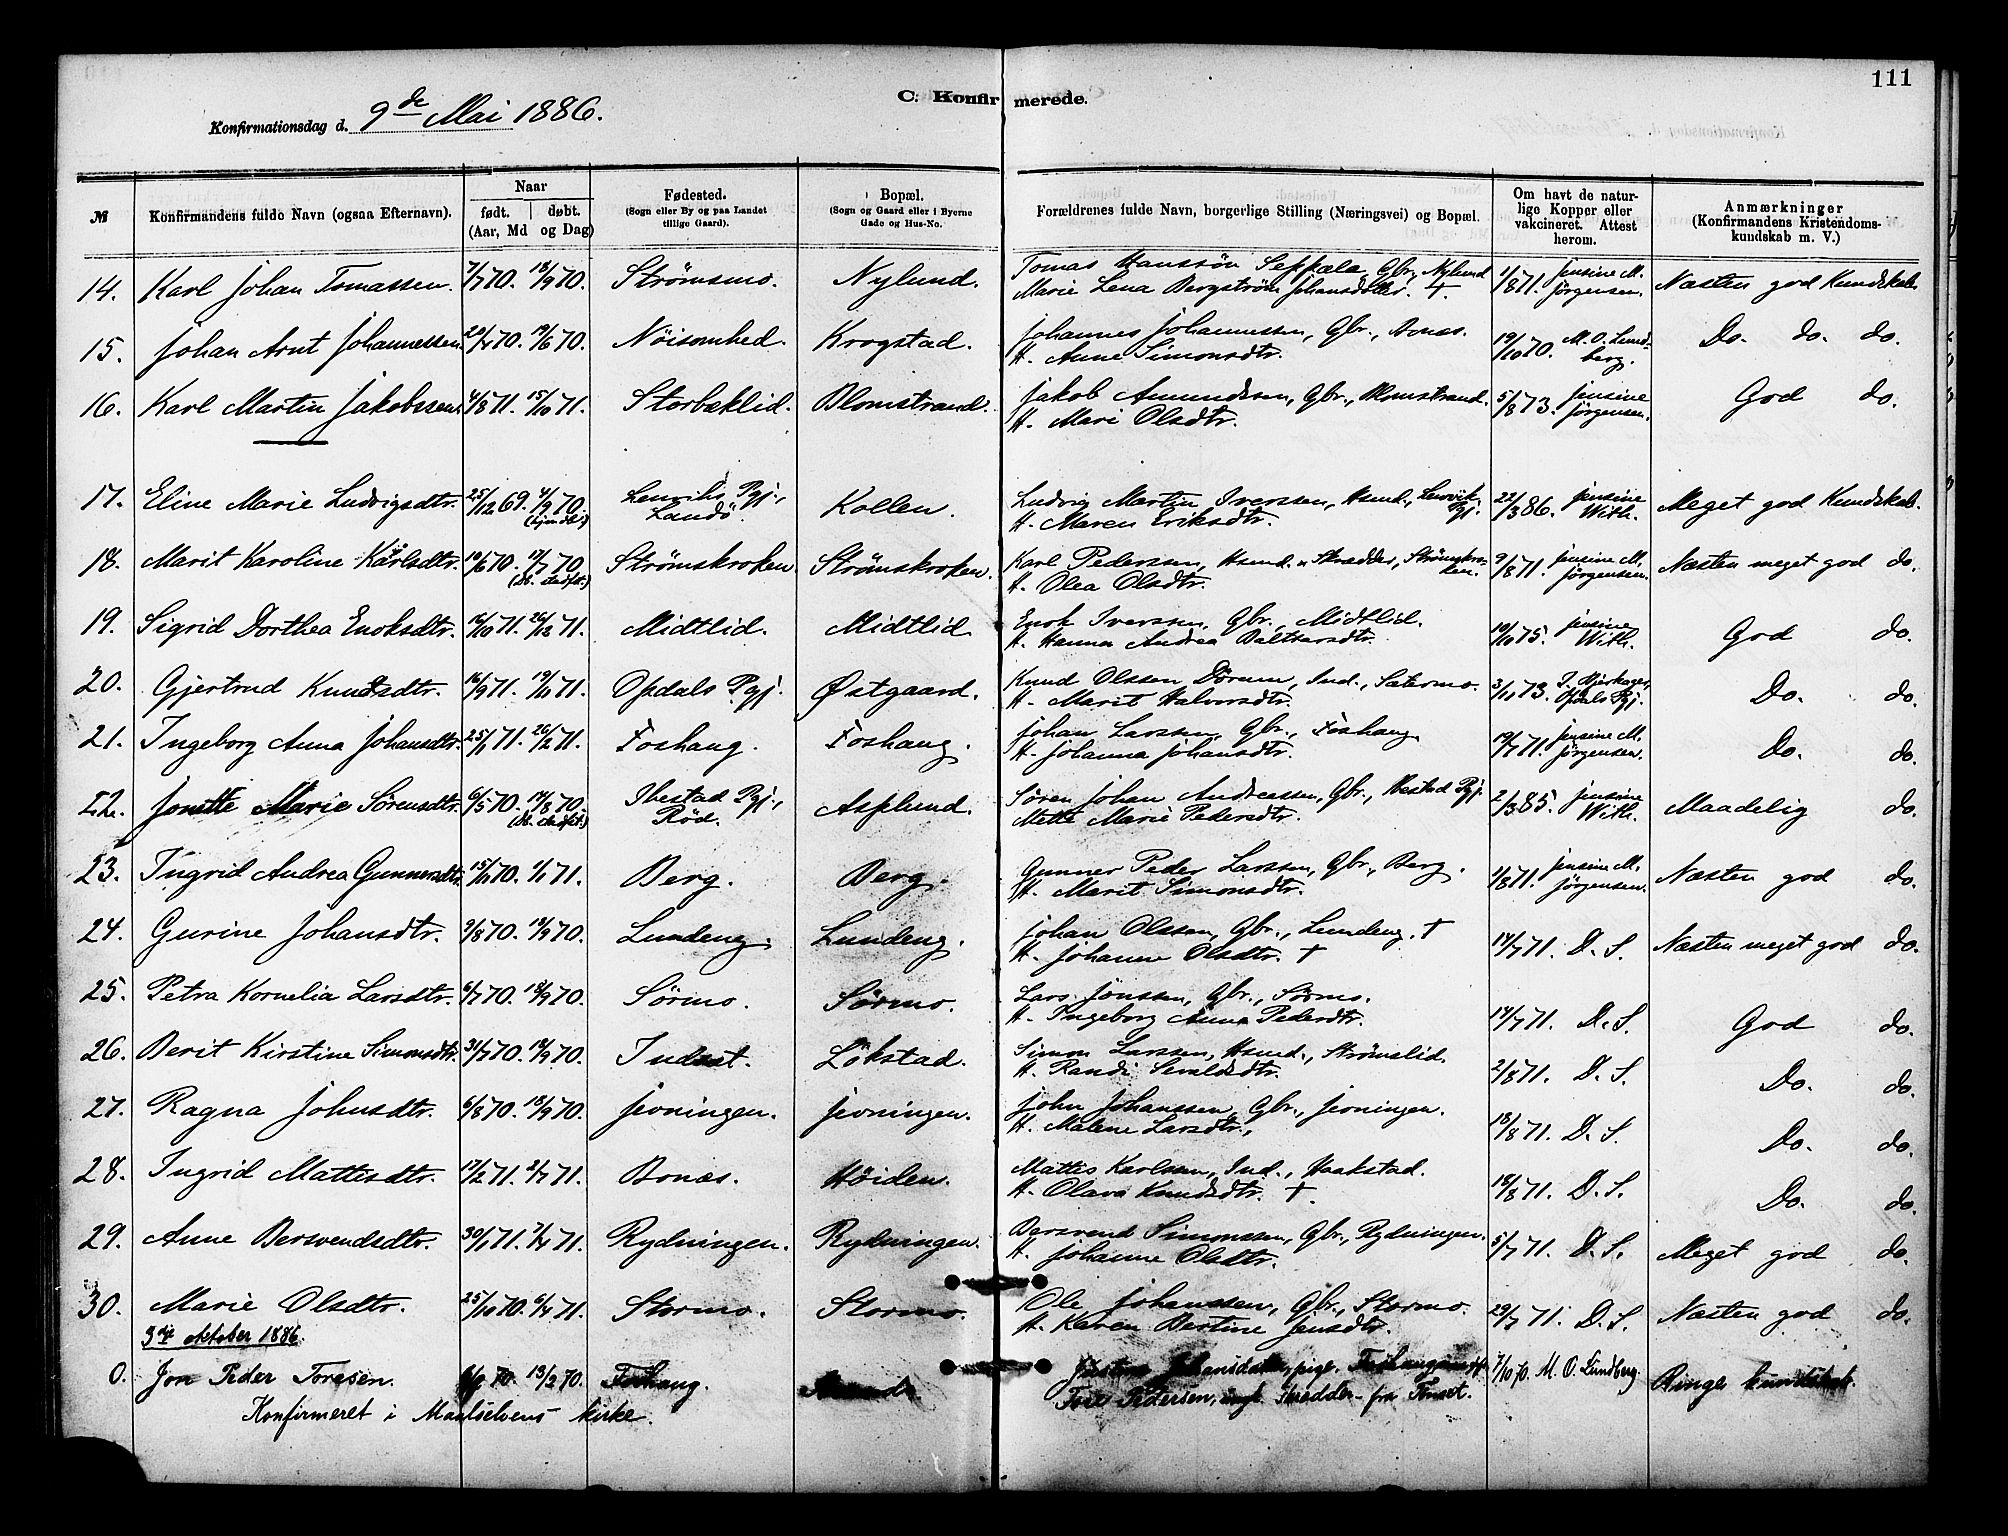 111
C. Konfirmerede.
Konfirmationsdag d. 9de Mai 1886.
№ Konfirmandens fulde Navn (ogsaa Efternavn). Naar født. døbt. (Aar, Md og Dag) Fødested. (Sogn eller By og paa Landet tillige Gaard). Bopæl. (Sogn og Gaard eller i Byerne Gade og Hus-No. Forældrenes fulde Navn, borgerlige Stilling (Næringsvei) og Bopæl. Om havt de naturlige Kopper eller vakcineret. Attest herom. Anmærkninger (Konfirmandens Kristendomskundskab m. V.)
14. Karl Johan Tomassen. 7/7 70. 18/9 70. Strømsmo. Nylund. Tomas Hanssøn Seppala, Gbr., Nylund 1/8 71. Jensine M. Jørgensen. Næsten god Kundskab.
Marie Lena Bergstrøm Johansdatter. †.
15. Johan Arnt Johannessen. 20/4 70. 19/6 70. Nöisomhed. Krogstad. Johannes Johannessen, Gbr., Bonæs. 19/10 70. M. O. Lundberg. Do. do. do.
H. Anne Simonsdtr.
16. Karl Martin Jakobssen. 4/8 71. 15/10 71. Storbæklid. Blomstrand. Jakob Amundsen, Gbr., Blomstrand. 5/8 73. Jensine Jørgensen. God do.
H. Mari Olsdtr.
17. Eline Marie Ludvigsdtr. 25/12 69. 4/9 70. (hjemdbt.) Lenviks Pgj., Landö. Kollen. Ludvig Martin Iverssen, Hsmd., Lenvik Pgj. 22/3 86. Jensine With. Meget god Kundskab.
H. Maren Eriksdtr.
18. Marit Karoline Karlsdtr. 10/6 70. 17/7 70. Strömskroken. Strömskroken. Karl Pederssen, Hsmd. u Skrædder, Strömskroken. 9/8 71. Jensine M. Jörgensen. Næsten meget god do.
H. Olea Olsdtr.
19. Sigrid Dorthea Enoksdtr. 16/10 71. 26/12 71. Midtlid. Midtlid. Enok Iverssen, Gbr., Midtlid. 10/10 75. Jensine With. God do.
H. Hanna Andrea Baltsersdtr.
20. Gjertrud Knudsdtr. 16/9 71. 19/10 71. Opdals Pgj. Østgaard. Knud Olssen Dörum, Ind., Sætermo. 3/11 73. Opdals Pgj. Do. do.
H. Marit Halvorsdtr.
21. Ingeborg Anna Johansdtr. 25/1 71. 26/2 71. Foshaug. Foshaug. Johan Larssen, Gbr., Foshaug. 19/7 71. Jensine M. Jörgensen. Do. do.
H. Johanna Johansdtr.
22. Jonette Marie Sörensdtr. 6/5 70. 14/8 70. Ibestad Pgj., Röd. Asplund. Sören Johan Andreassen, Gbr., Ibestad Pgj. 2/3 85. Jensine With. Maadelig do.
Mette Marie Pedersdtr.
23. Ingrid Andrea Gunnersdtr. 15/11 70. 1/1 71. Berg. Berg. Gunner Peder Larssen, Gbr., Berg. 1/8 71. Jensine M. Jörgensen. Næsten god do.
H. Marit Simonsdtr.
24. Gurine Johansdtr. 9/8 70. 18/9 70. Lundeng. Lundeng. Johan Olssen, Gbr., Lundeng. † 14/7 71. D. S. Næsten meget god do.
H. Johanne Olsdtr. †
25. Petra Kornelia Larsdtr. 6/7 70. 18/9 70. Sörmo. Sörmo. Lars Jonssen, Gbr., Sörmo. 14/7 71. D. S. God do.
H. Ingeborg Anna Pedersdtr.
26. Berit Kirstine Simonsdtr. 31/7 70. 18/9 70. Indset. Lökstad. Simon Larssen, Hsmd., Strömslid. 2/8 71. D. S. Do. do.
H. Randi Sevaldsdtr.
27. Ragna Johnsdtr. 6/8 70. 18/9 70. Jevningen. Jevningen. John Johanssen, Gbr., Jevningen. 18/8 71. D. S. Do. do.
H. Malene Larsdtr.,
28. Ingrid Mattisdtr. 17/2 71. 2/7 71. Bonæs. Höiden. Mattis Karlssen, Ind., Haakstad. 18/8 71. D. S. Do. do.
H. Olava Knudsdtr. †.
29. Anne Bersvendsdtr. 30/1 71. 7/4 71. Rydningen. Rydningen. Bersvend Simonssen, Gbr., Rydningen. 5/7 71. D. S. Meget god do.
H. Johanne Olsdtr.
30. Marie Olsdtr. 25/10 70. 6/4 71. Stormo. Stormo. Ole Johanssen, Gbr., Stormo. 29/7 71. D. S. Næsten god do.
H. Karen Bertine Jensdtr.
3die oktober 1886.
0. Jon Peder Toresen. 70. 13/2 70. Foshaug. Johansdatter, pige. 7/10 70. M. O. Lundberg. Ringe kundskab.
Konfirmeret i Maalselvens kirke. Tore Pedersen, ungk. Skrædder fra Tönset.